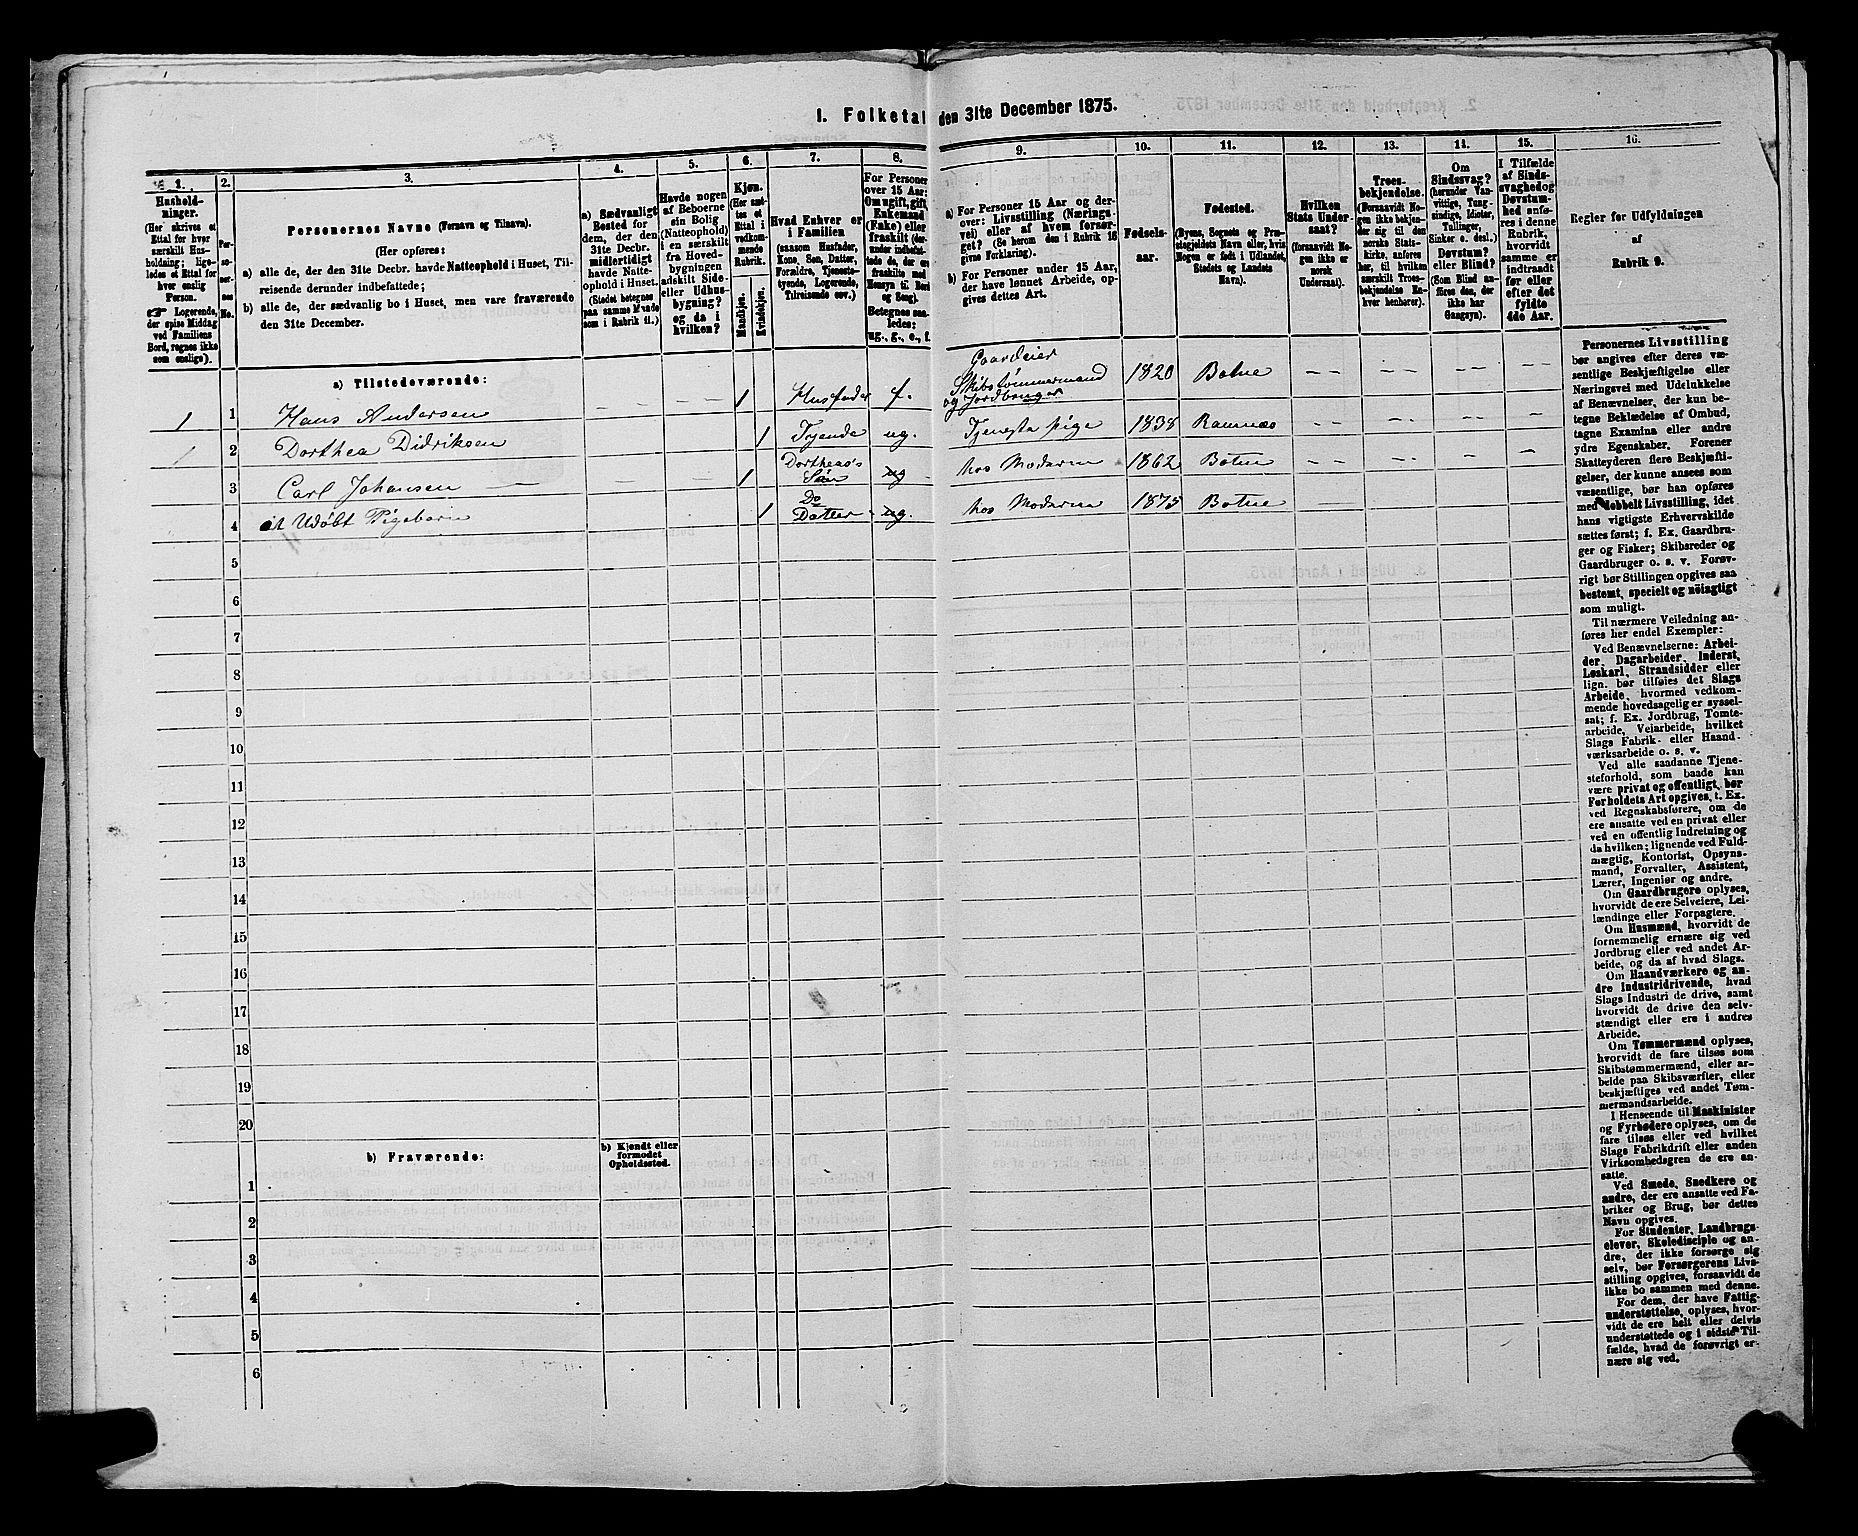 1. Folketal den 31te December 1875.
1.
Hushold-
ninger.
(Her skrives et
Ettal for hver
særskilt Hus-
holdning; lige-
ledes et Ettal for
hver enslig
Person.
☞ Logerende,
der spise Middag
ved Familiens
Bord, regnes ikke
som enslige).
2.
Per-
soner-
nes
No.
3.
Personernes Navne (Fornavn og Tilnavn).
(Her opføres:
a) alle de, der den 31te Decbr. havde Natteophold i Huset, Til-
reisende derunder indbefattede;
b) alle de, der sædvanlig bo i Huset, men vare fraværende
den 31te December.
4.
a) Sædvanligt
Bosted for
dem, der den
31te Decbr.
midlertidigt
havde Natte-
ophold i Huset.
(Stedet betegnes
paa samme Maade
som i Rubrik 11.)
5.
Havde nogen
af Beboerne
sin Bolig
(Natteophold)
i en særskilt
fra Hoved-
bygningen
adskilt Side-
eller Udhus-
bygning?
og da i
hvilken?
6.
Kjøn.
(Her sæt-
tes et
Ettal i
vedkom-
mende
Rubrik.
Mandkjøn.
Kvindekjøn.
7.
Hvad Enhver er
i Familien
(saasom Husfader,
Kone, Søn, Datter,
Forældre, Tjeneste-
tyende, Logerende,
Tilreisende osv.)
8.
For Personer
over 15 Aar:
Om ugift, gift,
Enkemand
(Enke) eller
fraskilt (der-
under indbefat-
tede de, der ere
fraskilte med
Hensyn til Bord
og Seng).
Betegnes saa-
ledes:
ug., g., e., f.
9.
a) For Personer 15 Aar og der-
over: Livsstilling (Nærings-
vei) eller af hvem forsør-
get? (Se herom den i Rubrik 16
givne Forklaring).
b) For Personer under 15 Aar,
der have lønnet Arbeide, op-
gives dettes Art.
10.
Fødsels-
aar.
11.
Fødested.
(Byens, Sognets og Præ-
stegjeldets Navn eller, hvis
Nogen er født i Udlandet,
Stedets og Landets
Navn).
12.
Hvilken
Stats Under-
saat?
(forsaavidt No-
gen ikke er
norsk
Undersaat).
13.
Troes-
bekjendelse.
(Forsaavidt No-
gen ikke bekjen-
der sig til den
norske Stats-
kirke, anføres
her, til hvilken
særskilt Troes-
bekjendelse En-
hver henhører).
14.
Om
Sindssvag?
(herunder Van-
vittige, Tung-
sindige, Idioter,
Tullinger,
Sinker o. desl.)
Døvstum?
eller Blind?
(Som Blind an-
føres den, der
ikke har
Gangsyn).
15.
I Tilfælde
af Sinds-
svaghed og
Døvstum-
hed anfø-
res i denne
Rubrik,
hvorvidt
samme er
indtraadt
før eller
efter det
fyldte
4de Aar.
16.
Regler for Udfyldningen
af
Rubrik 9.
a) Tilstedeværende:
1 1 Hans Andersen – – – 1 Husfader f. Gaardeier Skibstømmermand og Jordbruger 1820 Botne – – – – – –
1 2 Dorthea Didriksen 1 Tyende ug. Tjenestepige 1838 Ramnæs – – – – – –
3 Carl Johansen – – – 1 Dortheas Søn ug – hos Moderen 1862 Botne – – – – – –
4 et Udøbt Pigebarn 1 Do Datter – ug. hos Moderen 1875 Botne
5
6
7
8
9
10
11
12
13
14
15
16
17
18
19
20
b) Fraværende:
b) Kjendt eller
formodet
Opholdssted.
1
2
3
4
5
6
Personernes Livsstilling
bør angives efter deres væ-
sentlige Beskjæftigelse eller
Næringsvei med Udelukkelse
af Benævnelser, der kun be-
tegne Beklædelse af Ombud,
tagne Examina eller andre
ydre Egenskaber. Forener
Skatteyderen flere Beskjæfti-
gelser, der kunne ansees som
væsentlige, bør han opføres
med dobbelt Livsstilling, idet
hans vigtigste Erhvervskilde
sættes først; f. Ex. Gaardbru-
ger og Fisker; Skibsreder og
Gaardbruger o. s. v. Forøv-
rigt bør Stillingen opgives saa
bestemt, specielt og nöiagtigt
som muligt.
Til nærmere Veiledning an-
føres her endel Exempler:
Ved Benævnelserne: Arbei-
der, Dagarbeider, Inderst,
Løskarl, Strandsidder eller
lign. bør tilføies det Slags
Arbeide, hvormed vedkom-
mende hovedsagelig er syssel-
sat; f. Ex. Jordbrug, Tomte-
arbeide, Veiarbeide, hvilket
Slags Fabrik- eller Haand-
værksarbeide o. s. v.
Ved alle saadanne Tjene-
steforhold, som baade kan
være privat og offentligt, bør
Forholdets Art opgives, t. Ex.
ved Regnskabsførere, om de
ere ansatte ved en privat eller
ved en offentlig Indretning og
da hvilken; lignende ved Fuld-
mægtig, Kontorist, Opsyns-
mand, Forvalter, Assistent,
Lærer, Ingeniør og andre.
Om Gaardbrugere oplyses,
hvorvidt de ere Selveiere, Lei-
lændinge eller Forpagtere.
Om Husmænd, hvorvidt de
fornemmelig ernære sig ved
Jordbrug eller ved andet Ar-
beide, og da af hvad Slags.
Om Haandværkere og an-
dre Industridrivende, hvad
Slags Industri de drive, samt
hvorvidt de drive den selv-
stændigt eller ere i andres
Arbeide.
Om Tømmermænd oplyses,
hvorvidt de fare tilsøs som
Skibstømmermænd, eller ar-
beide paa Skibsværfter, eller
beskjæftiges ved andet Tøm-
mermandsarbeide.
I Henseende til Maskinister
og Fyrbødere oplyses, om de
fare tilsøs eller ved hvilket
Slags Fabrikdrift eller anden
Virksomhedsgren de ere an-
satte.
Ved Smede, Snedkere og
andre, der ere ansatte ved Fa-
briker og Brug, bør dettes
Navn opgives.
For Studenter, Landbrugs-
elever, Skoledisciple og an-
dre, der ikke forsørge sig
selv, bør Forsørgerens Livs-
stilling opgives, forsaavidt de
ikke bo sammen med denne.
For dem, der have Fattig-
understøttelse, oplyses, hvor-
vidt de ere helt eller delvis
understøttede og i sidste Til-
fælde, hvad de forøvrigt er-
nære sig ved.